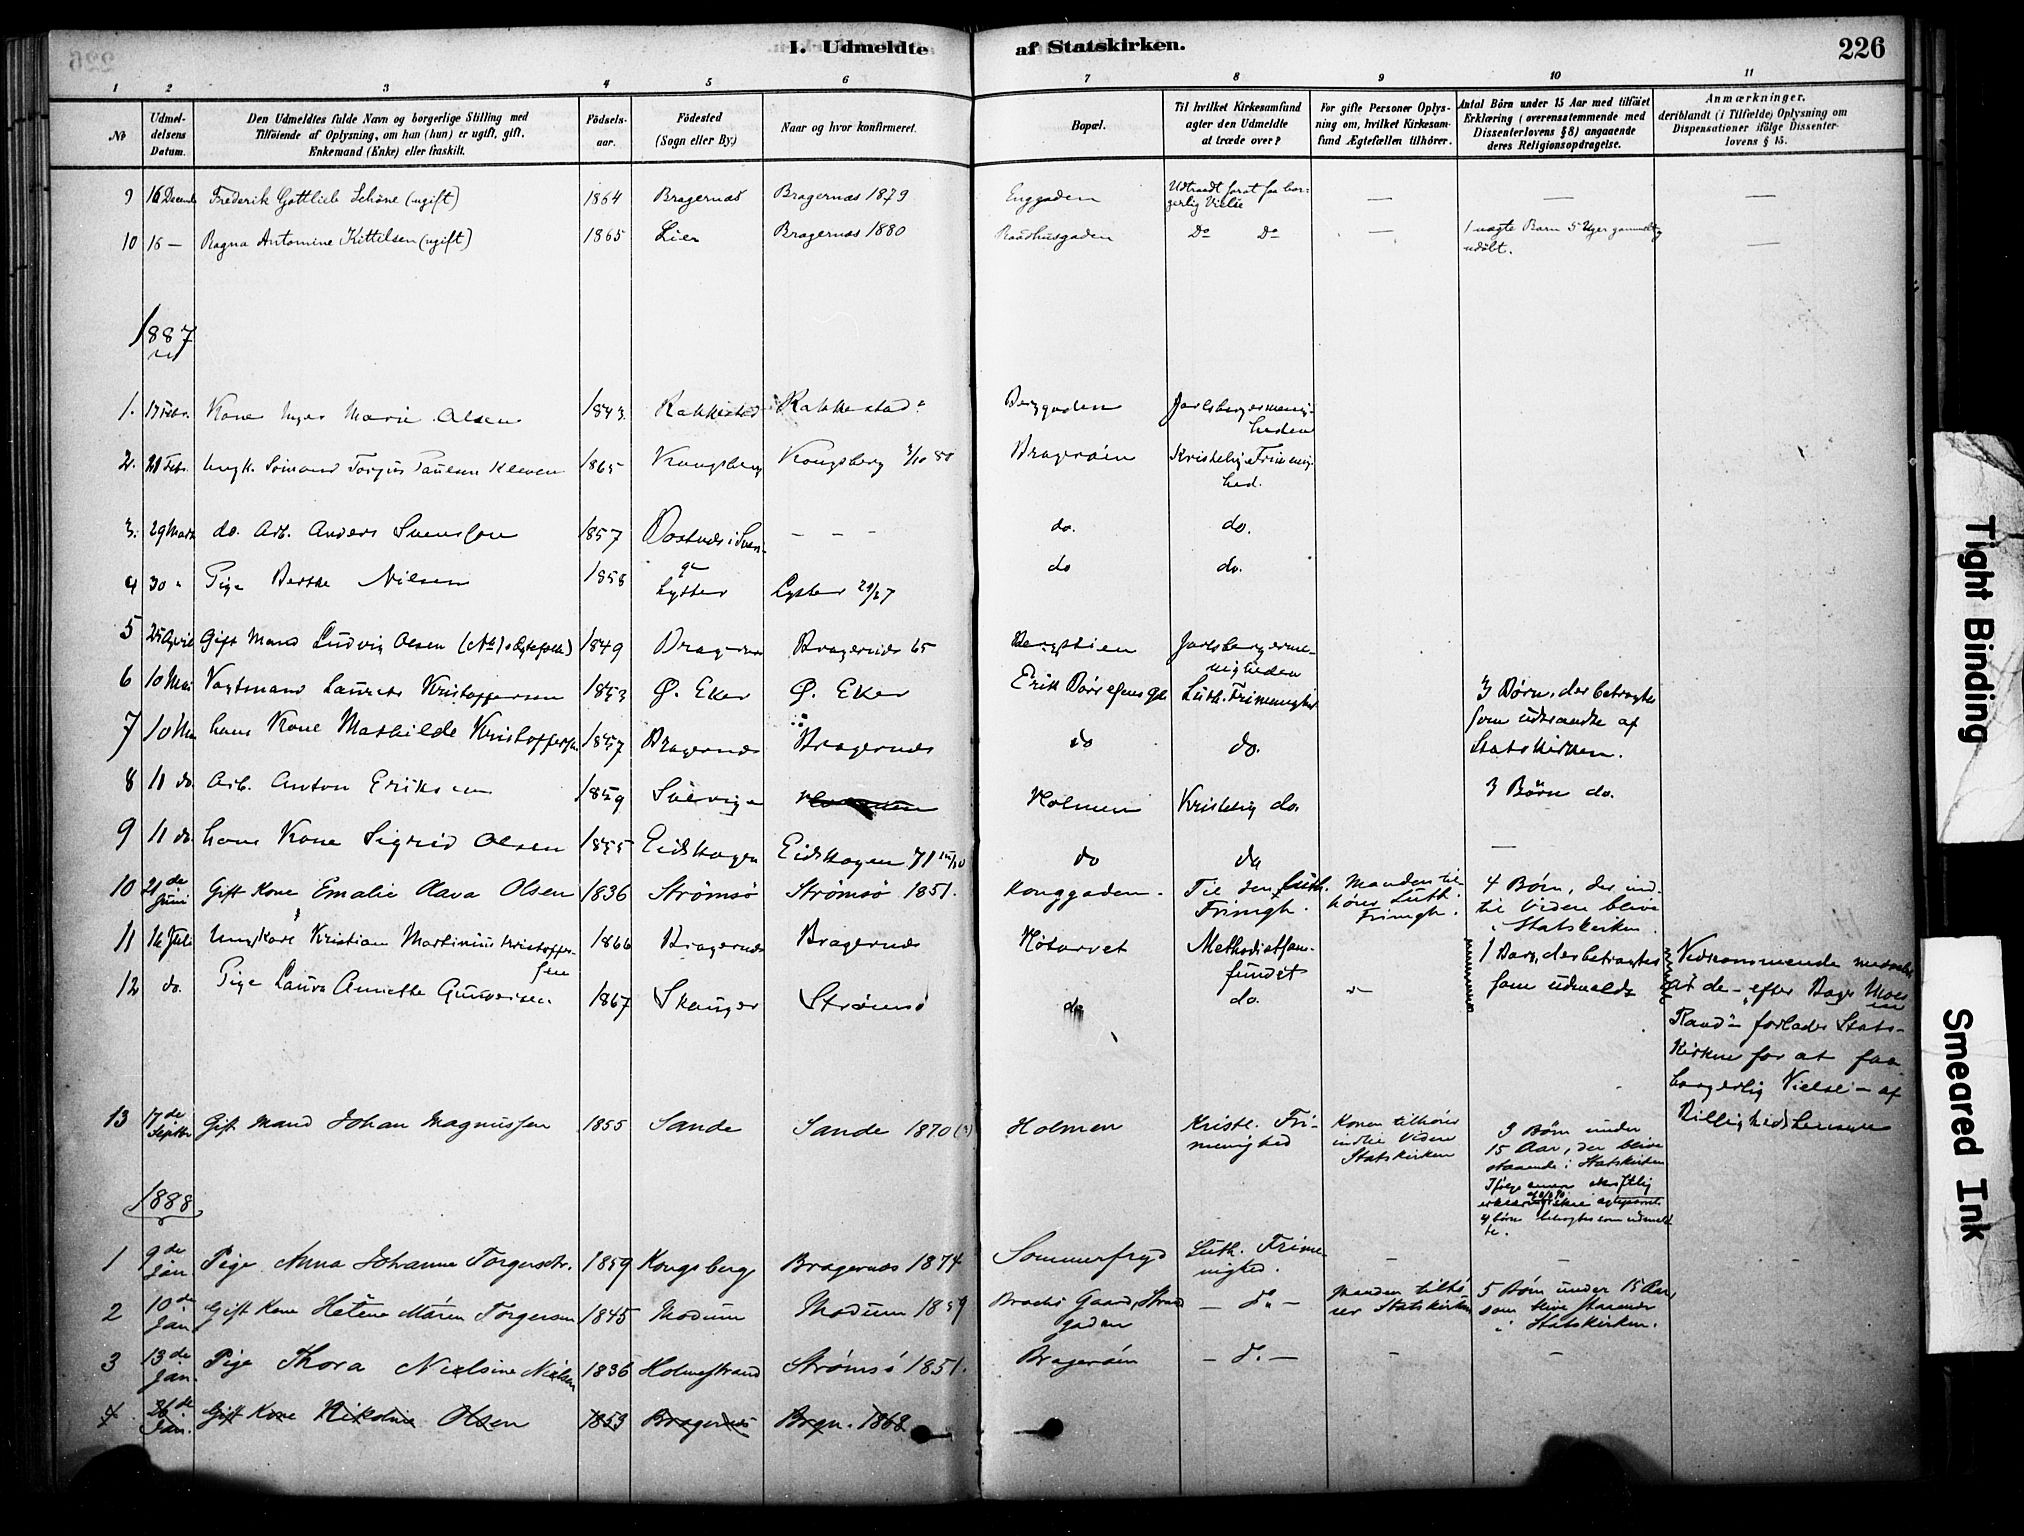 226
I. Udmeldte af Statskirken.
1 2 3 4 5 6 7 8 9 10 11
No
Udmel-
delsens
Datum.
Den Udmeldtes fulde Navn og borgerlige Stilling med
Tilföiende af Oplysning, om han (hun) er ugift, gift.
Enkemand (Enke) eller fraskilt.
Födsels-
aar.
Födested
(Sogn eller By.)
Naar og hvor konfirmeret.
Bopæl.
Til hvilket Kirkesamfund
agter den Udmeldte
at træde over?
For gifte Personer Oplys-
ning om, hvilket Kirkesam-
fund Ægtefællen tilhörer.
Antal Börn under 15 Aar med tilföiet
Erklæring (overensstemmende med
Dissenterlovens § 8) angaaende
deres Religionsopdragelse.
Anmærkninger,
deriblandt (i Tilfælde) Oplysning om
Dispensationer ifölge Dissenter-
lovens § 15.
9 16 Decemb Frederik Gottlieb Schöne (ugift) 1864 Bragernæs Bragernæs 1879 Enggaden Udtraadt forat faa bor-
gerlig Vielse — — —
10 16 — Ragna Antomine Kittilsen (ugift) 1865 Lier Bragernæs 1880 Raadhusgaden Do Do — 1 uægte Barn 5 Uger gammelt og
udöbt. —
1887
1. 17 Febr. Kone Inger Marie Olsen 1843 Rakkestad Rakkestad Berggaden Jarlsbergermenig-
heden
2. 21 Febr. Ungk. Sömand Torjus Paulsen Kleven 1865 Kongsberg Kongsberg 3/10 80 Brageröen Kristelig Frimenig-
hed.
3. 29 Marts do. Arb. Anders Svensson 1857 i Sveri-
ge — — — do. do.
4 30 " Pige Berthe Nilsen 1858 Lyster Lyster do do.
5 25 April Gift Mand Ludvig Olsen 1849 Bragernæs Bragernæs 65 Jarlsbergerme-
nigheden
6 10 Mai Vogtmand Laurits Kristoffersen 1853 Ø. Eker Ø. Eker Erik Börresens Gd. Luth. Frimenighed 3 Börn, der betragtes
som udtraadte af
Statskirken.
7 10 Mai hans Kone Mathilde Kristoffersen 1857 Bragernæs Bragernæs do do.
8 11 do. Arb. Anton Eriksen 1859 Sverige Holmen Kristelig do. 3 Börn do.
9 11 do. hans Kone Sigrid Olsen 1855 Eidskogen Eidskogen 71 15/10 do do —
10 21de Juni Gift Kone Emalie Olava Olsen 1836 Strömsö Strömsö 1851. Konggaden. Til den Luth.
Frimgh. Manden til-
hörer Luth.
Frimgh. 4 Börn, der ind-
til Videre blive
i Statskirken.
11 14 Juli Ungkarl Kristian Martinius Kristoffer-
sen 1866 Bragernæs Bragernæs Höitorvet Methodistsam-
fundet 1 Barn, der betragtes
som udmeldt
12 do. Pige Laura Annette Gulbrandsen 1867 Skauger Strömsö do do.
Vedkommende meddeler
at de - efter Bager
Raad - forlader Stats-
kirken for at faa
borgerlig Vielse - af
Billighedshensyn
13 17de Septbr Gift Mand Johan Magnussen 1855 Sande Sande 1870 (?) Holmen Kristl. Fri-
menighed Konen tilhörer
indtil Videre
Statskirken 3 Börn under
15 Aar, der blive
staaende i Statskirken
Ifölge senere skriftlig
4 börn betragtes som udmeld-
te.
1888
1 9de Jan Pige Anna Johanne Torgersdr. 1859 Kongsberg Bragernæs 1874 Sommerfryd Luth. Frime-
nighed. — —
2 10de Jan Gift Kone Helene Maren Torgersen 1845 Modum Modum 1859 Brochs Gaard, Strand
gaden — do. — Manden tilhö-
rer Statskirken 5 Börn under 15 Aar,
som blive staaende
i Statskirken.
3 13de Jan. Pige Thora Nielsine Nielsen 1836 Holmestrand Strömsö 1851. Brageröen — do. — — —
4. 26de Jan. Gift Kone Nikoline Olsen 1853 Bragernæs Brgn. 1868
Tight Binding
Smeared Ink